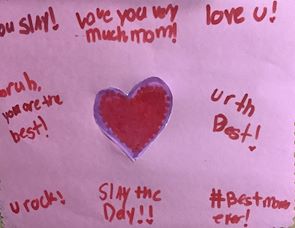 ou slay!
Love you very
much mom!
love u!
bruh,
you are the
best!
ur th
Best!
u rock!
Slay the
Day!!
#Bestmom
ever!